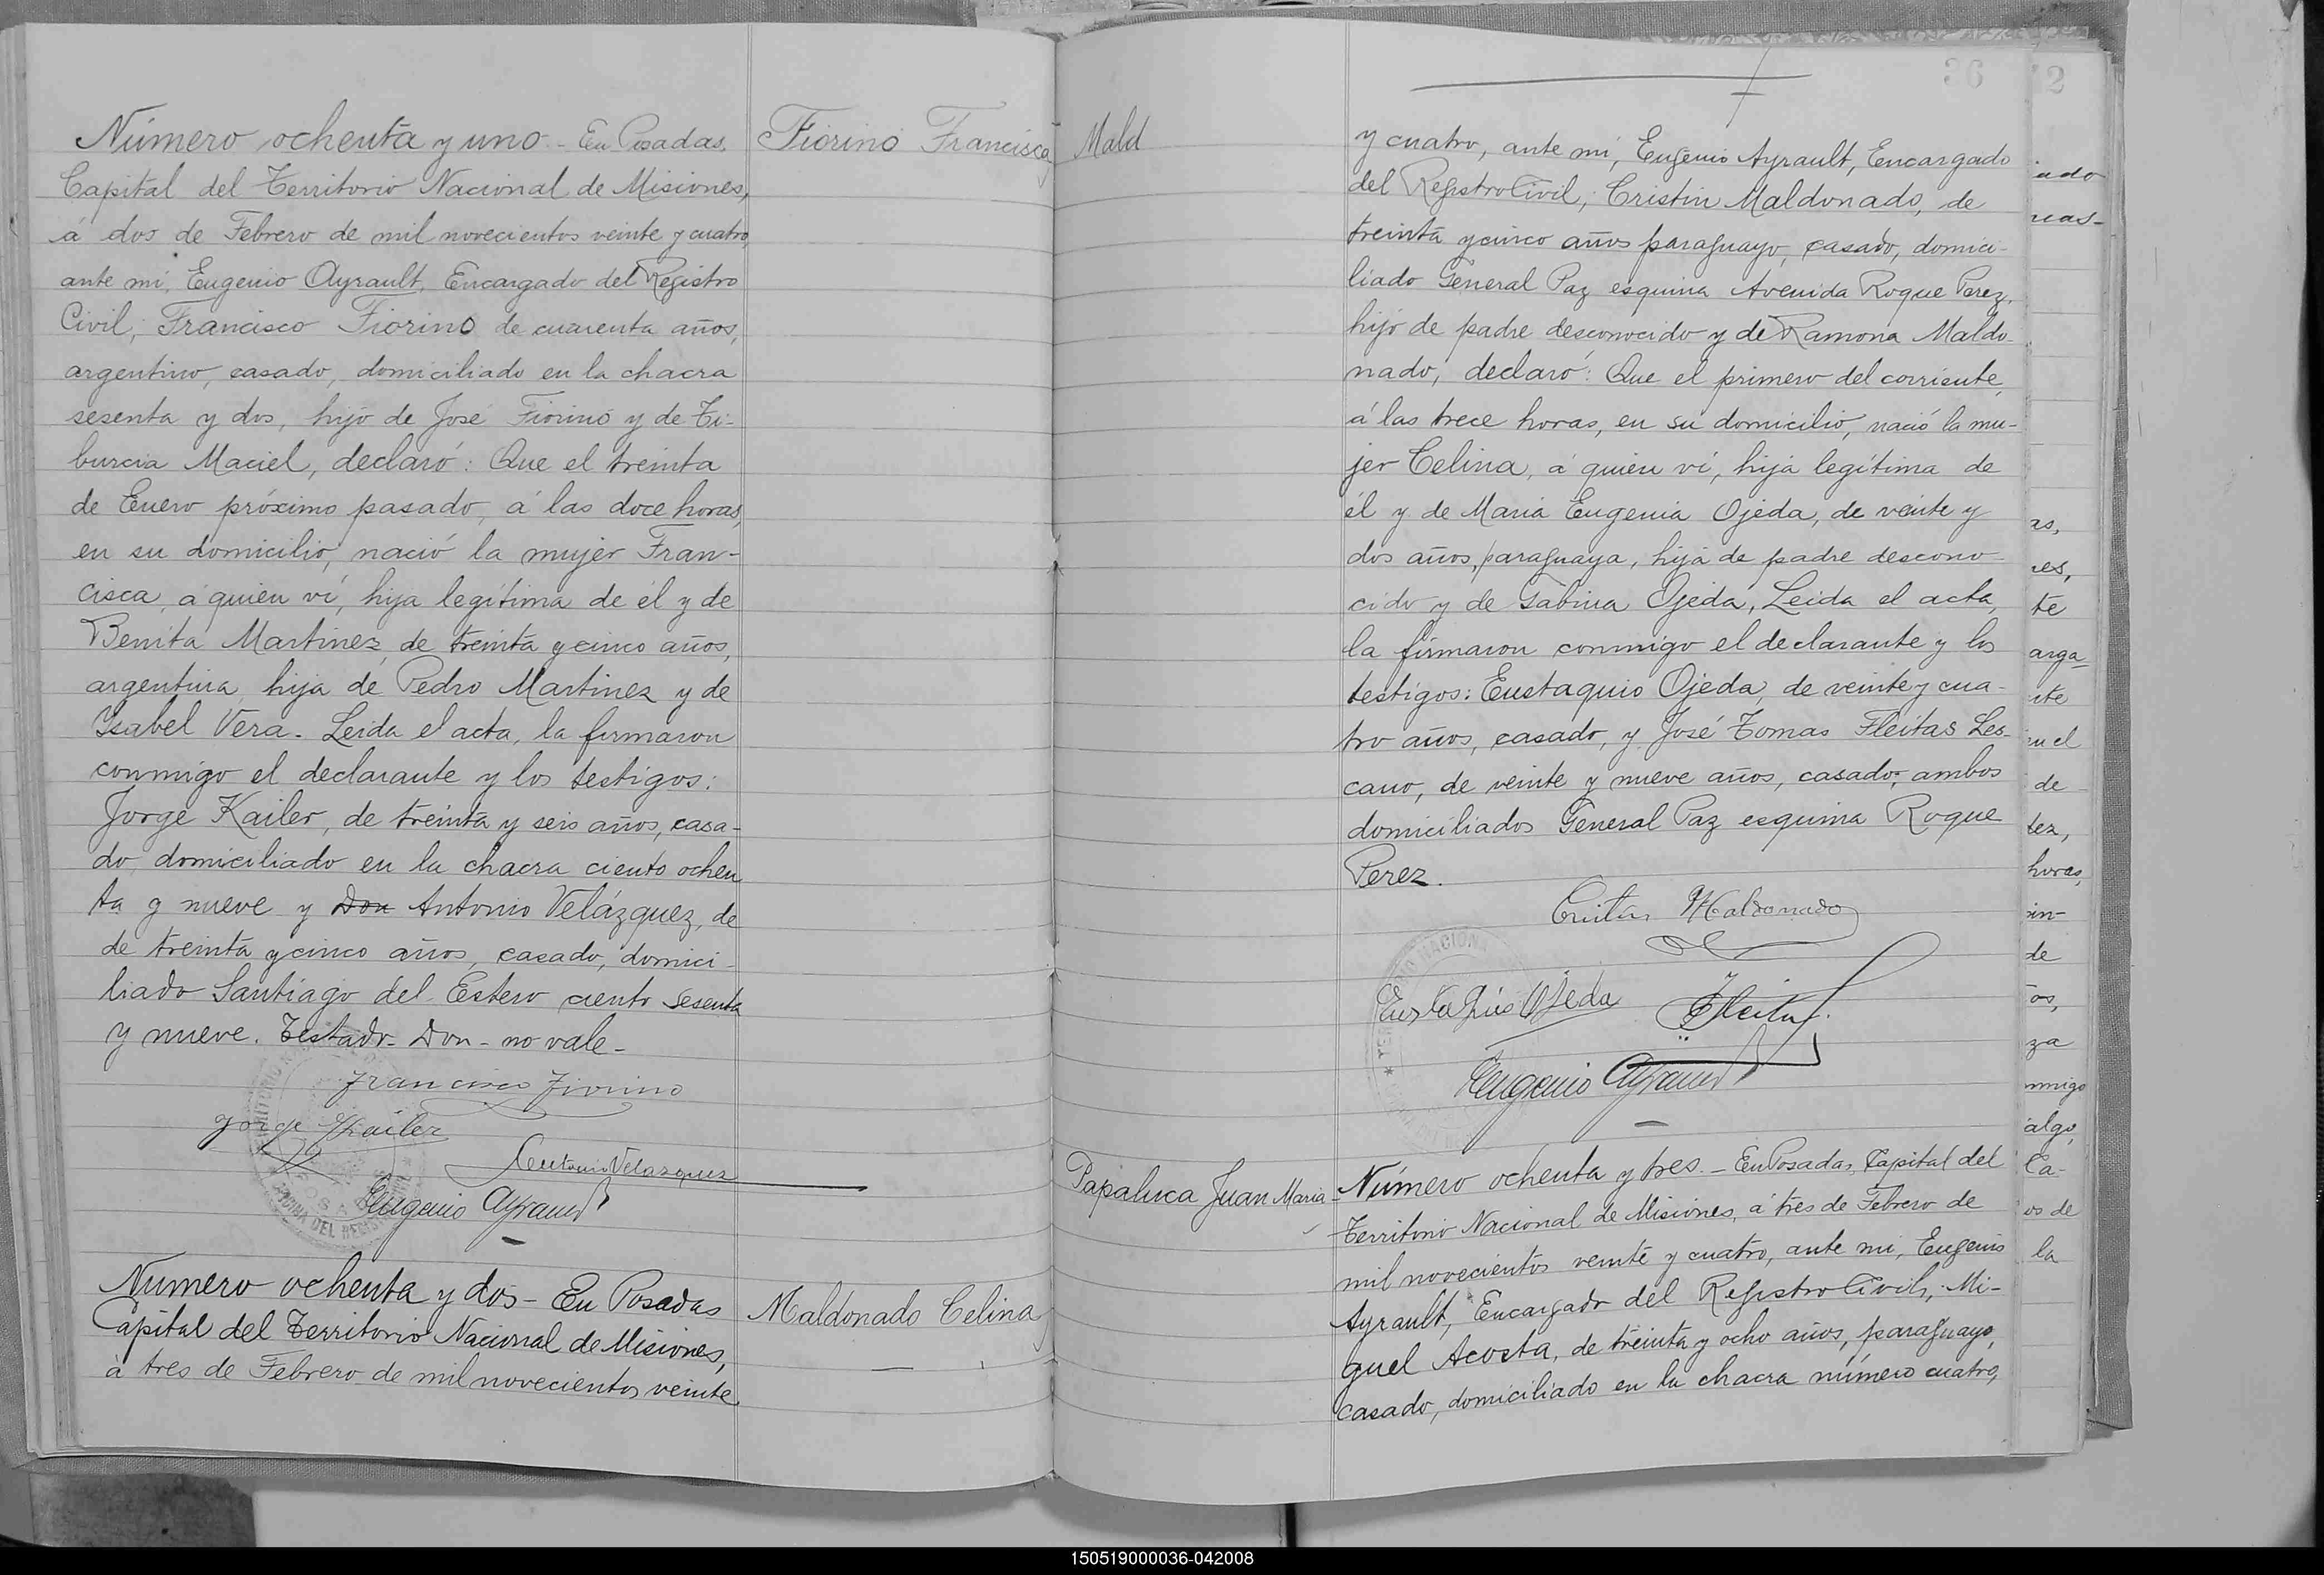 Número ochenta y uno - En Posadas,
Capital del Territorio Nacional de Misiones,
á dos de Febrero de mil novecientos veinte y cuatro,
ante mi, Eugenio Ayrault, Encargado del Registro
Civil; Francisco Fiorino de cuarenta años,
argentino, casado, domiciliado en la chacra
sesenta y dos, hijo de José Fiorino y de Ti-
burcia Maciel, declaró: Que el treinta
de Enero próximo pasado, á las doce horas,
en su domicilio, nació la mujer Fran-
cisca, á quien ví, hija legítima de él y de
Benita Martinez, de treinta y cinco años,
argentina, hija de Pedro Martinez y de
Ysabel Vera. Leida el acta, la firmaron
conmigo el declarante y los testigos:
Jorge Kailer, de treinta y seis años, casa-
do, domiciliado en la chacra ciento ochen
ta y nueve y Don Antonio Velázquez, de
de treinta y cinco años, casado, domici-
liado Santiago del Estero ciento sesenta
y nueve. Testado - Don - no vale -
Francisco Fiorino
Jorge Kailer
Antonio Velazquez
Eugenio Ayrault
Número ochenta y dos - En Posadas
Capital del Territorio Nacional de Misiones,
á tres de Febrero de mil novecientos veinte
Fiorino Francisca
Maldonado Celina
36
Mald
y cuatro, ante mi, Eugenio Ayrault, Encargado
del Registro Civil; Cristin Maldonado, de
treinta y cinco años paraguayo, casado, domici-
liado General Paz esquina Avenida Roque Perez,
hijo de padre desconocido y de Ramona Maldo-
nado, declaró: Que el primero del corriente,
á las trece horas, en su domicilio, nació la mu-
jer Celina, á quien ví, hija legítima de
él y de Maria Eugenia Ojeda, de veinte y
dos años, paraguaya, hija de padre descono-
cido y de Gabina Ojeda. Leida el acta,
la firmaron conmigo el declarante y los
testigos: Eustaquio Ojeda, de veinte y cua-
tro años, casado, y José Tomas Fleitas Les-
cano, de veinte y nueve años, casado, ambos
domiciliados General Paz esquina Roque
Perez.
Maldonado
Ojeda
Eugenio Ayrault
Papaluca Juan Maria -
Número ochenta y tres. - En Posadas, Capital del
Territorio Nacional de Misiones, á tres de Febrero de
mil novecientos veinte y cuatro, ante mi, Eugenio
Ayrault, Encargado del Registro Civil; Mi-
guel Acosta, de treinta y ocho años, paraguayo,
casado, domiciliado en la chacra número cuatro,
2
as,
te
arga-
de
horas,
in-
de
os,
za
nmigo
algo,
Ca-
os de
la
150519000036-042008